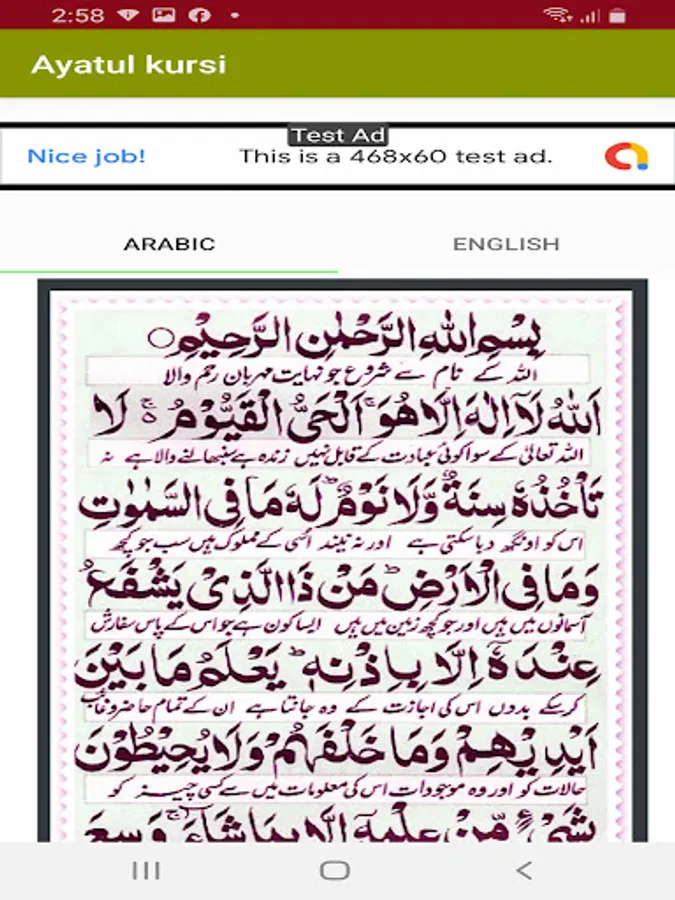 2:58
Ayatul kursi
Test Ad
Nice job!
This is a 468x60 test ad.
ARABIC
ENGLISH
بِسْمِ اللهِ الرَّحْمٰنِ الرَّحِيْمِ
اللہ کے نام سے شروع جو نہایت مہربان رحم والا
اَللهُ لَآ اِلٰهَ اِلَّا هُوَ ۚ اَلْحَيُّ الْقَيُّوْمُ ۚ لَا
اللہ تعالیٰ کے سوا کوئی عبادت کے قابل نہیں زندہ ہے سنبھالنے والا ہے نہ
تَاْخُذُهٗ سِنَةٌ وَّلَا نَوْمٌ ؕ لَهٗ مَا فِي السَّمٰوٰتِ
اس کو اونگھ دبا سکتی ہے اور نہ نیند اسی کے مملوک ہیں سب جو کچھ
وَمَا فِي الْاَرْضِ ؕ مَنْ ذَا الَّذِيْ يَشْفَعُ
آسمانوں میں ہیں اور جو کچھ زمین میں ہیں ایسا کون ہے جو اس کے پاس سفارش
عِنْدَهٗٓ اِلَّا بِاِذْنِهٖ ؕ يَعْلَمُ مَا بَيْنَ
کرسکے بدوں اس کی اجازت کے وہ جانتا ہے ان کے تمام حاضر و غائب
اَيْدِيْهِمْ وَمَا خَلْفَهُمْ وَلَا يُحِيْطُوْنَ
حالات کو اور وہ موجودات اس کی معلومات میں سے کسی چیز کو
بِشَيْءٍ مِّنْ عِلْمِهٖٓ اِلَّا بِمَا شَآءَ ۚ وَسِعَ